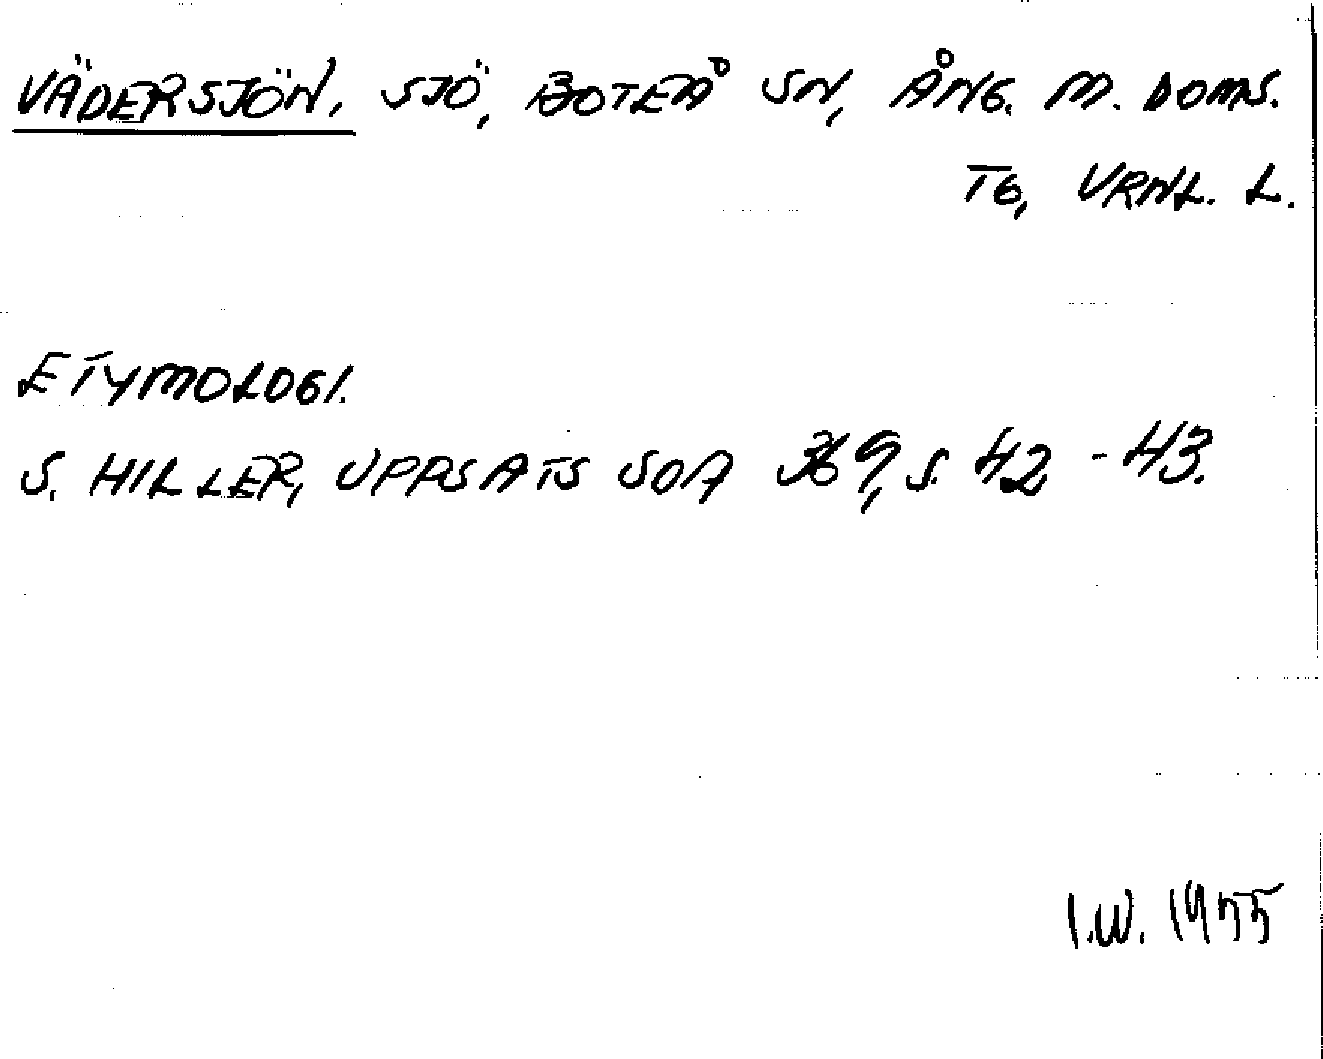 VÄDERSJÖN. SJÖ, BOTEÅ SN, ÅNG. M. DOMS.
TG, VRNL. L.
ETYMOLOGI.
S. HILLER, UPPSATS SOA 369, S. 42 - 43.
I.W. 1955